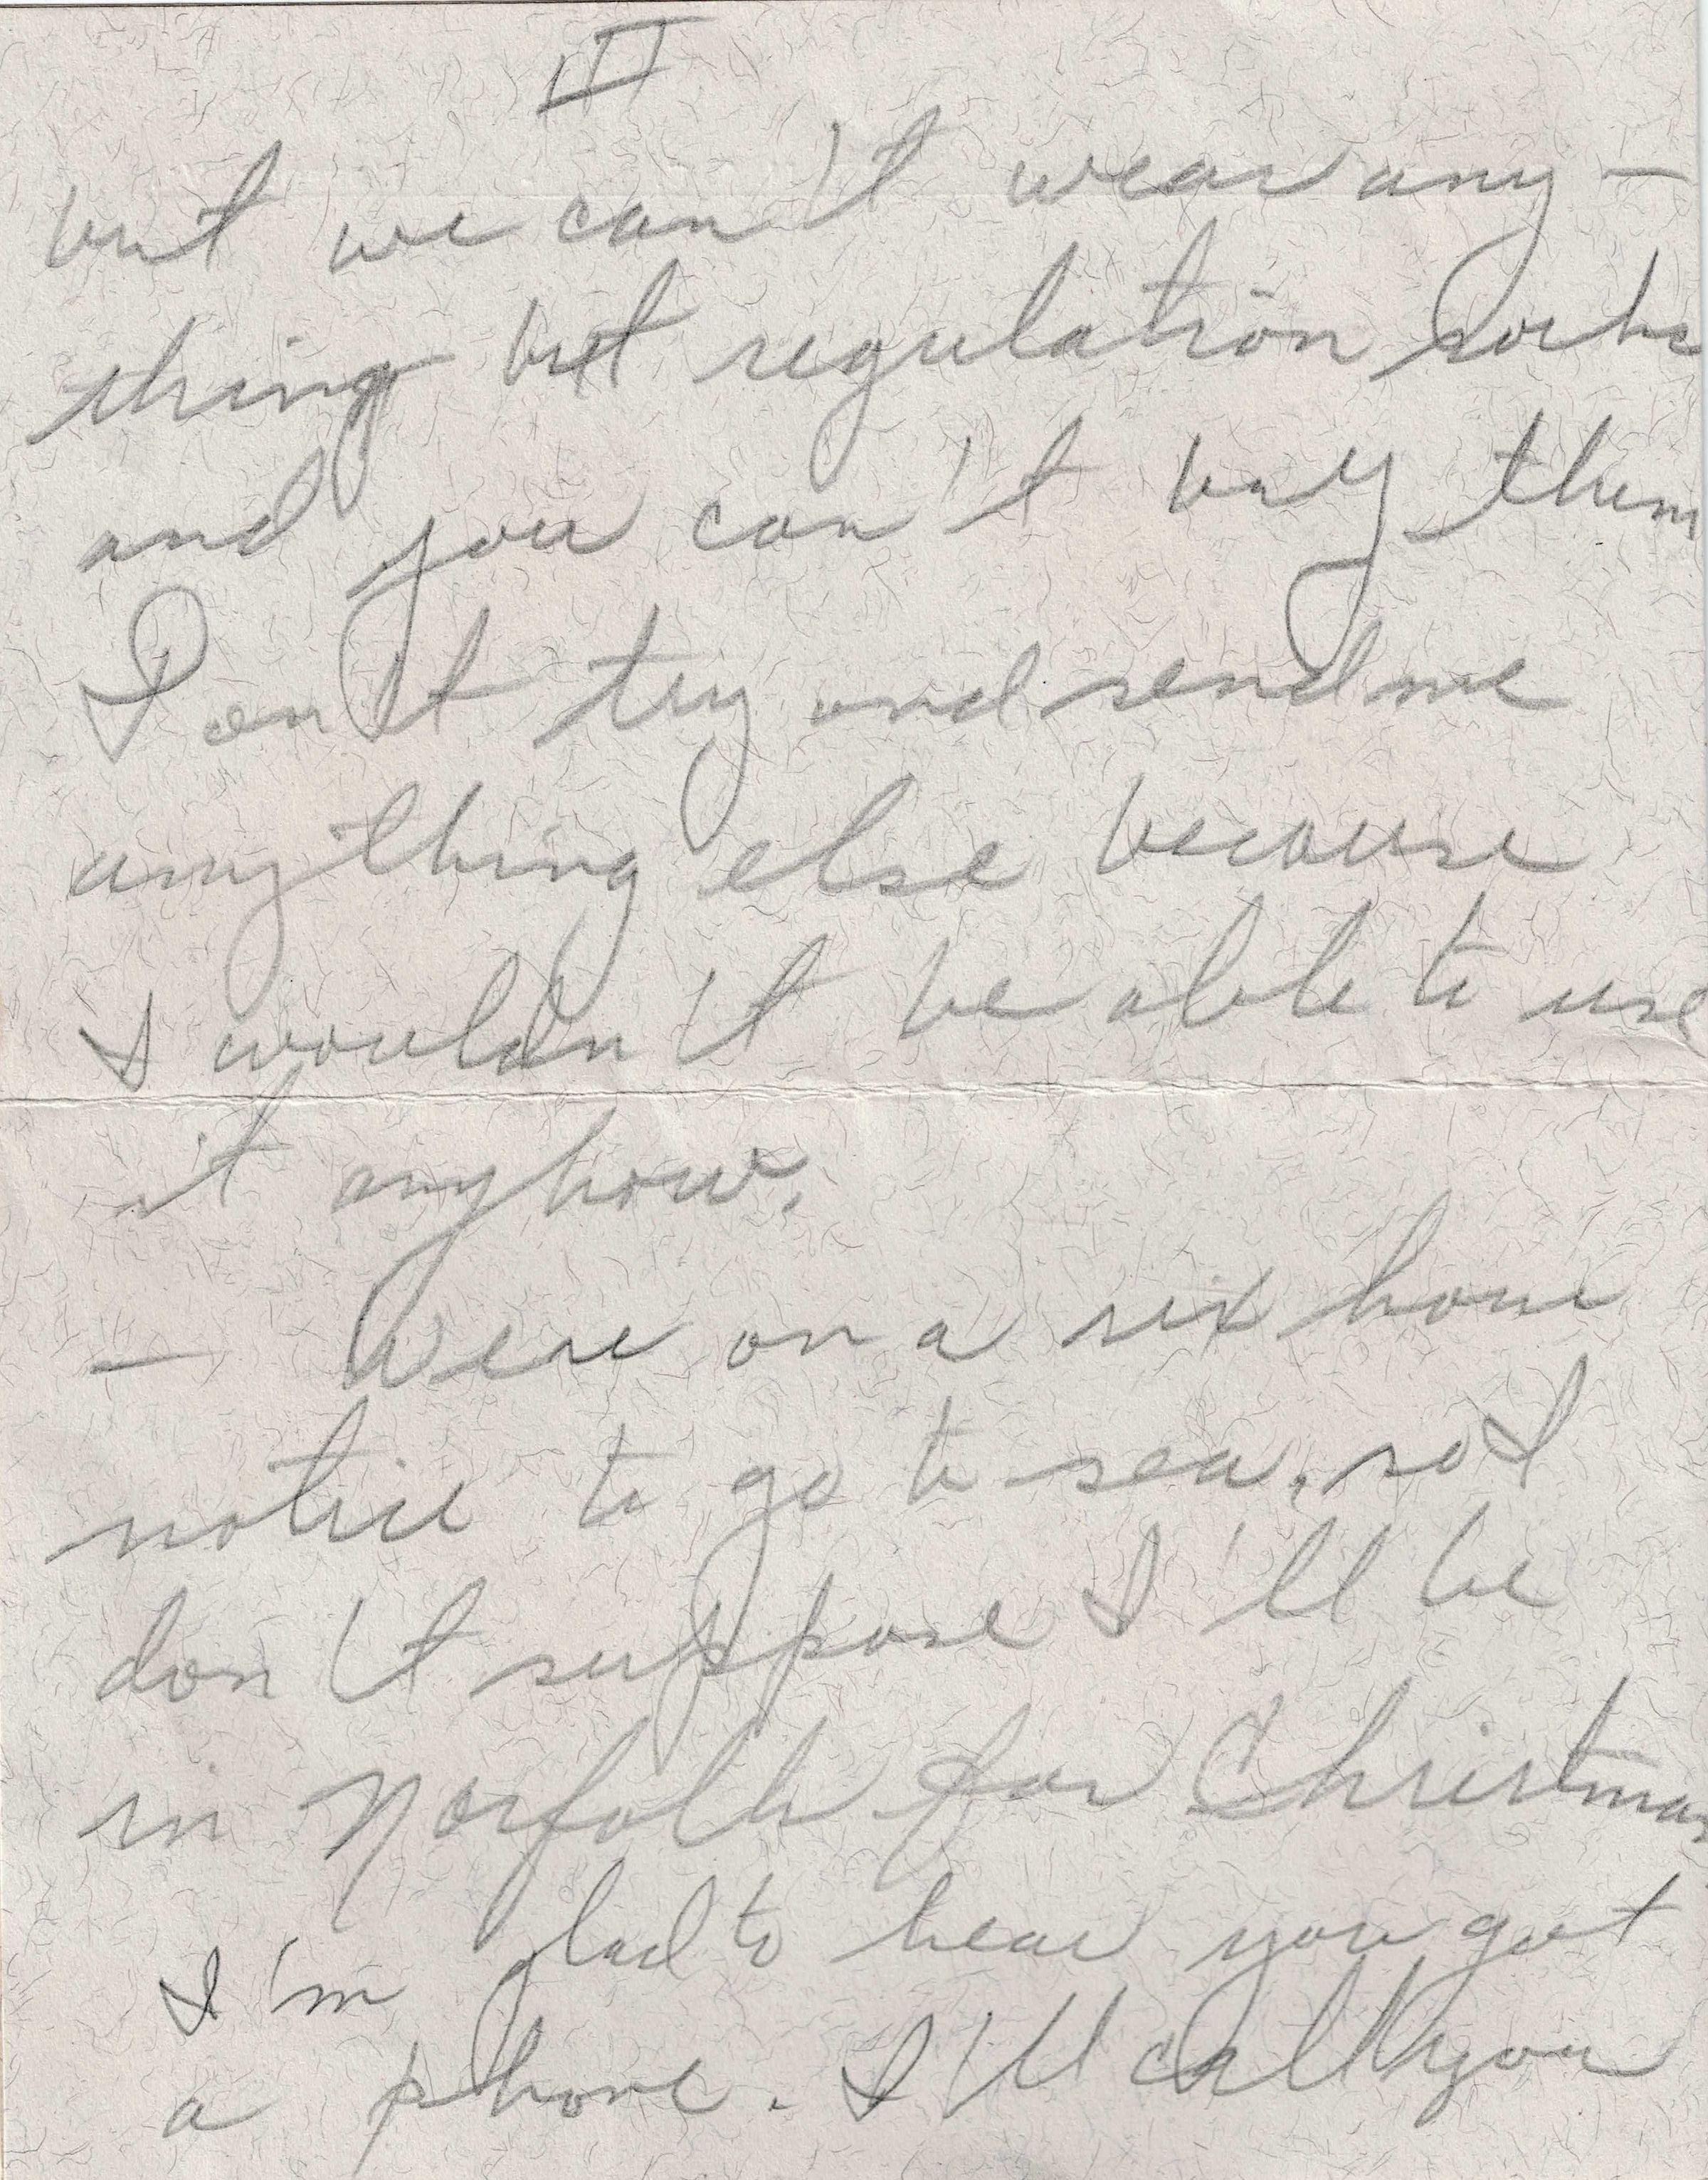 III
but we can't wear any-
thing but regulation socks
and you can't buy them
Don't try and send me
anything else because
I wouldn't be able to use
it anyhow.
— Were on a six hour
notice to go to sea, so I
don't suppose I'll be
in Norfolk for Christmas
I'm glad to hear you got
a phone. I'll call you